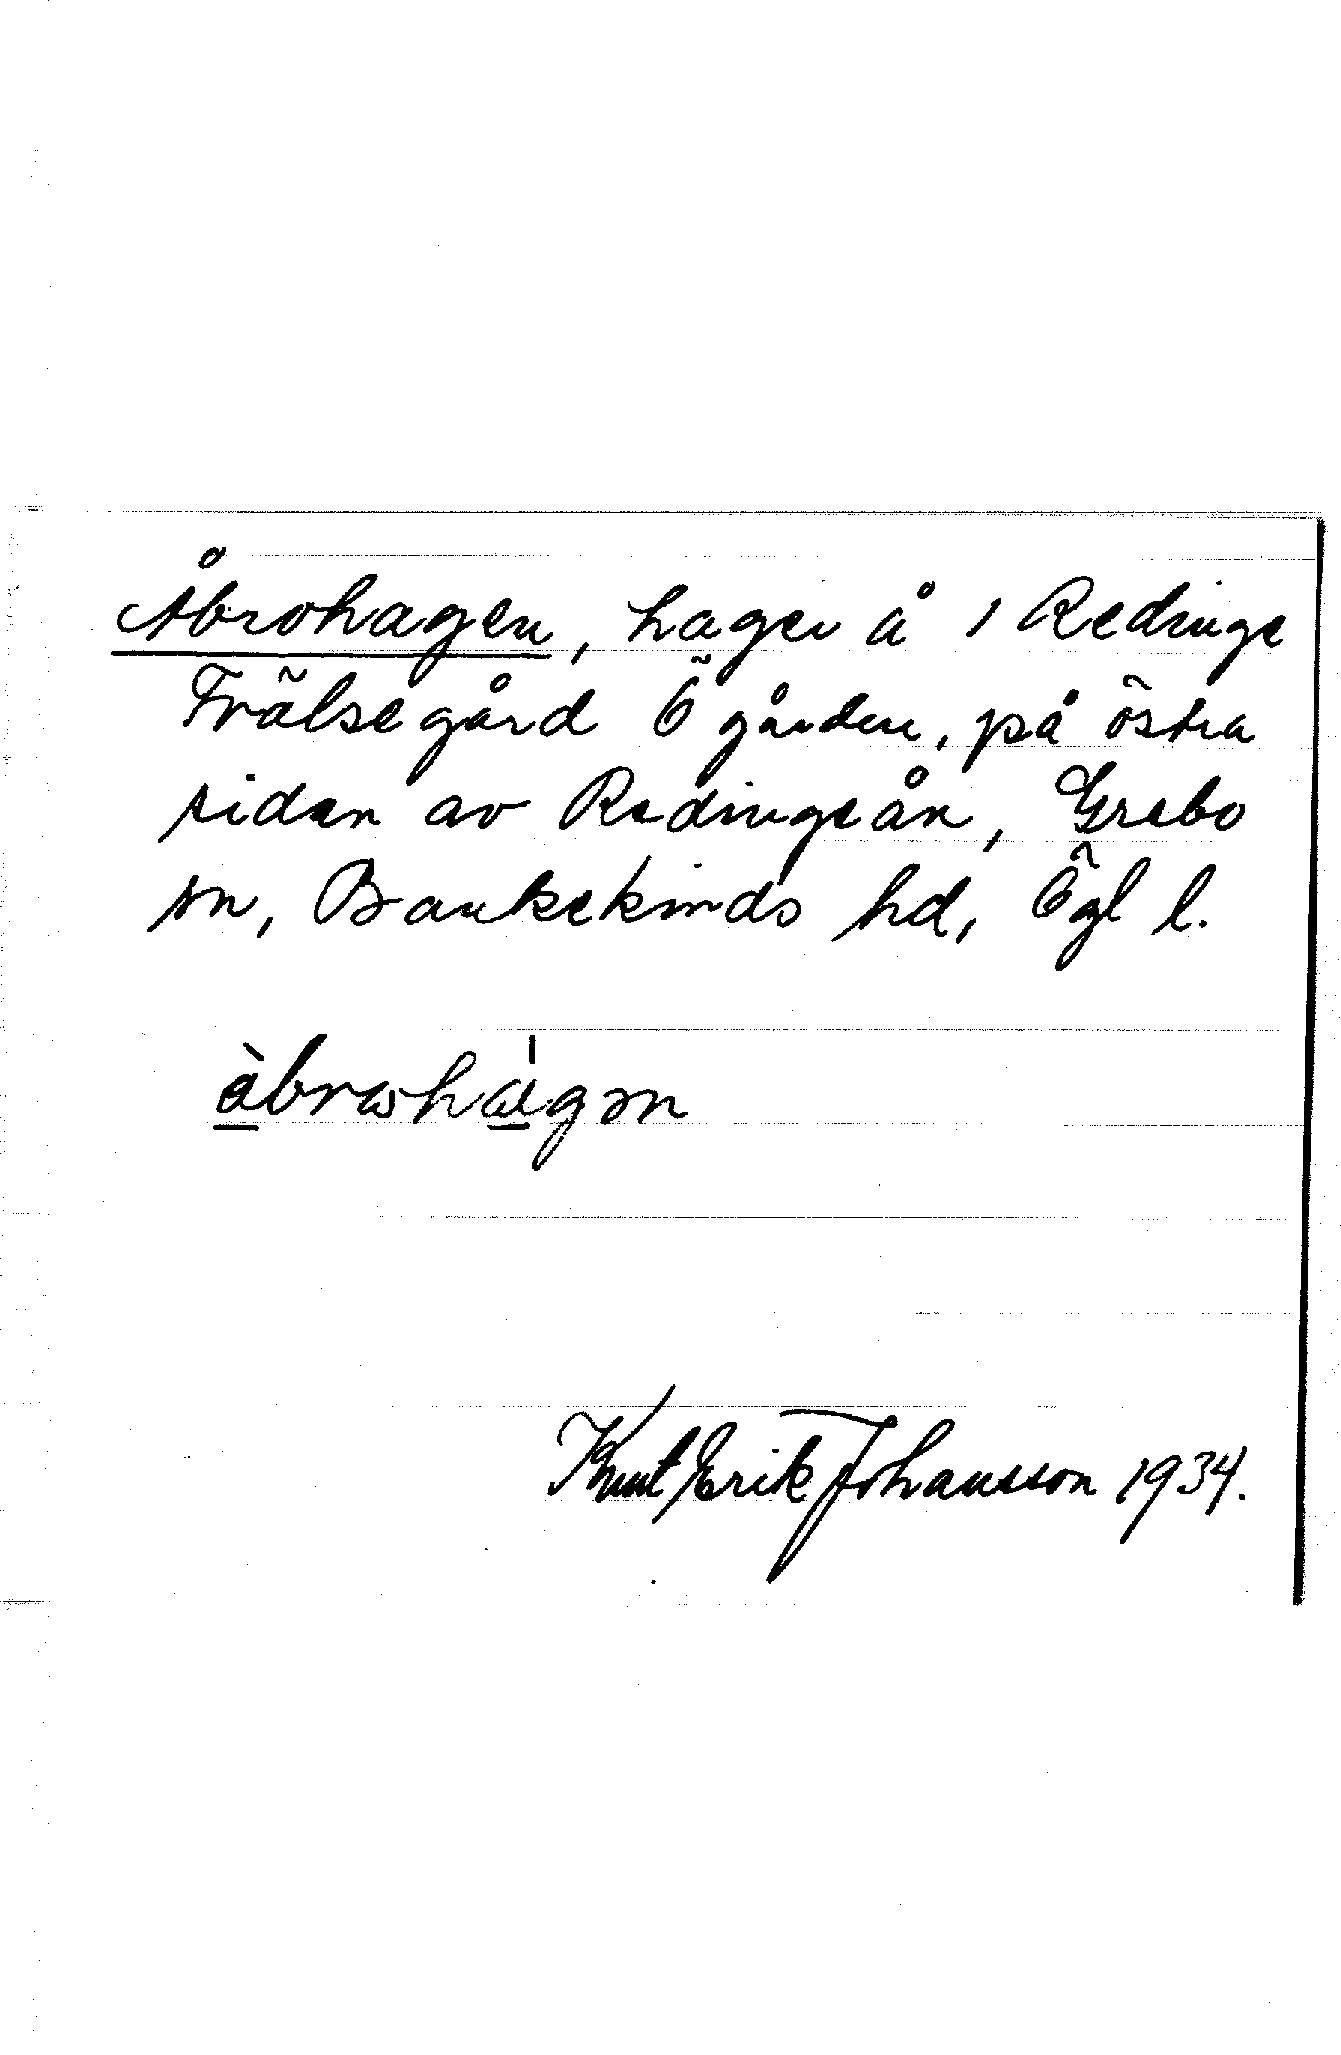 Åbrohagen, hagen å 1 Redinge
Frälsegård Ögården, på östra
sidan av Redingeån, Grebo
sn, Bankekinds hd, Ögl l.
Knut Erik Johansson 1934.